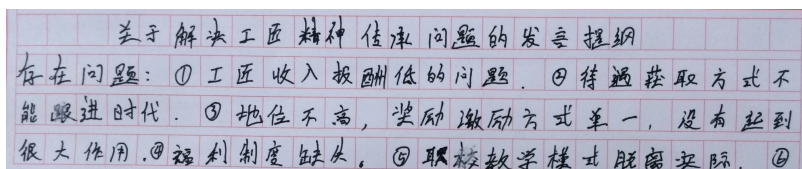 关于解决工匠精神传承问题的发言提纲
存在问题：①工匠收入报酬低的问题．②待遇获取方式不
能跟进时代．③地位不高，奖励激励方式单一，没有起到
很大作用．④福利制度缺失．⑤职校教学模式脱离实际．⑥